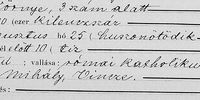 környe, 3 szám alatt
(ezer Kilencszáz
usztus hó 25 (huszonötödik
előtt 10 ( tíz
u : vallása: római katholiku
Mihály, Vincze.